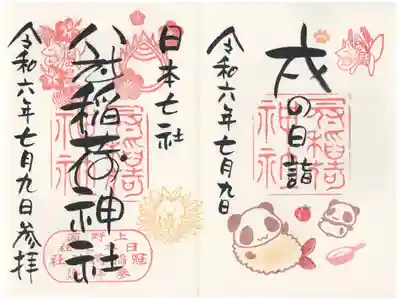 戌の日詣
令和六年七月九日
日本七社
冠稲荷神社
令和六年七月九日参拝